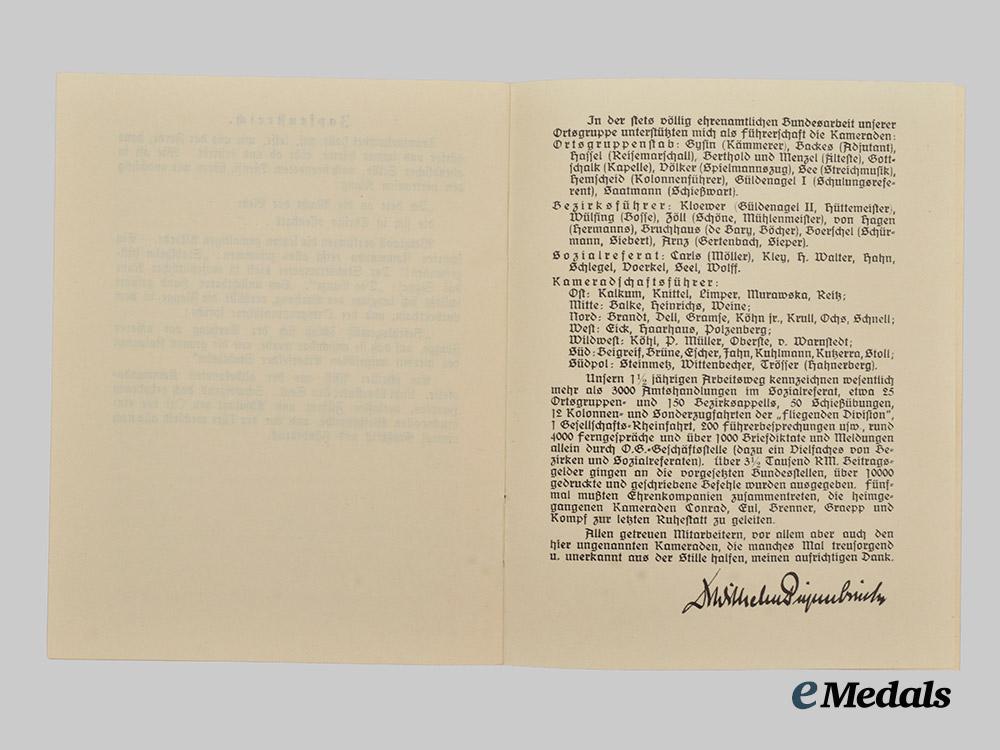 In der stets völlig ehrenamtlichen Bundesarbeit unserer
Ortsgruppe unterstützten mich als Führerschaft die Kameraden:
Ortsgruppenstab: Gysin (Kämmerer), Backes (Adjutant),
Hassel (Reisemarschall), Berthold und Menzel (Älteste), Gott-
schalk (Kapelle), Völker (Spielmannszug), See (Streichmusik),
Hemscheid (Kolonnenführer), Güldenagel I (Schulungsrefe-
rent), Saatmann (Schießwart).
Bezirksführer: Kloewer (Güldenagel II, Hüttemeister),
Wülfing (Bosse), Zöll (Schöne, Mühlenmeister), von Hagen
(Hermanns), Bruchhaus (de Bary, Böcher), Boerschel (Schür-
mann, Siebert), Arnz (Gertenbach, Sieper).
Sozialreferat: Carls (Möller), Kley, H. Walter, Hahn,
Schlegel, Voerkel, Seel, Wolff.
Kameradschaftsführer:
Ost: Kalkum, Knittel, Limper, Murawska, Reitz;
Mitte: Balke, Heinrichs, Weine;
Nord: Brandt, Dell, Gramse, Köhn jr., Krull, Ochs, Schnell;
West: Eick, Haarhaus, Polzenberg;
Wildwest: Köhl, P. Müller, Oberste, v. Warnstedt;
Süd: Beigreif, Brüne, Escher, Jahn, Kuhlmann, Kutzerra, Stoll;
Südpol: Steinmetz, Wittenbecher, Trösser (Hahnerberg).
Unsern 1½ jährigen Arbeitsweg kennzeichnen wesentlich
mehr als 3000 Amtshandlungen im Sozialreferat, etwa 25
Ortsgruppen- und 150 Bezirksappells, 50 Schießübungen,
12 Kolonnen- und Sonderzugfahrten der „fliegenden Division",
1 Gesellschafts-Rheinfahrt, 200 Führerbesprechungen usw., rund
4000 Ferngespräche und über 1000 Briefdiktate und Meldungen
allein durch O.G.-Geschäftsstelle (dazu ein Vielfaches von Be-
zirken und Sozialreferaten). Über 3½ Tausend RM. Beitrags-
gelder gingen an die vorgesetzten Bundesstellen, über 10000
gedruckte und geschriebene Befehle wurden ausgegeben. Fünf-
mal mußten Ehrenkompanien zusammentreten, die heimge-
gangenen Kameraden Conrad, Eul, Brenner, Graepp und
Kompf zur letzten Ruhestatt zu geleiten.
Allen getreuen Mitarbeitern, vor allem aber auch den
hier ungenannten Kameraden, die manches Mal treusorgend
u. unerkannt aus der Stille halfen, meinen aufrichtigen Dank.
Wilhelm
eMedals